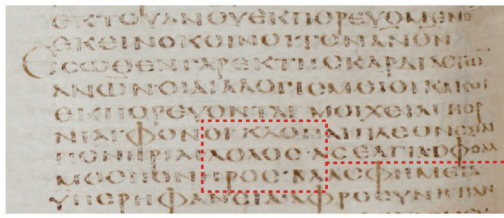 ΕΚΤΟΥΑΝΟΥΕΚΠΟΡΕΥΟΜΕΝΟ
ΕΚΕΙΝΟΚΟΙΝΟΙΤΟΝΑΝΟΝ
ΕϹΩΘΕΝΓΑΡΕΚΤΗϹΚΑΡΔΙΑϹΤΩ
ΑΝΩΝΟΙΔΙΑΛΟΓΙϹΜΟΙΟΙΚΑΚΟΙ
ΕΚΠΟΡΕΥΟΝΤΑΙ ΜΟΙΧΕΙΑΙ ΠΟΡ
ΝΙΑΙ ΦΟΝΟΙ ΚΛΟΠΑΙ ΠΛΕΟΝΕΞΙΑΙ
ΠΟΝΗΡΙΑΙ ΔΟΛΟϹ ΑϹΕΛΓΙΑ ΟΦΘΑΛ
ΜΟϹ ΠΟΝΗΡΟϹ ΒΛΑϹΦΗΜΕΙΑ
ΥΠΕΡΗΦΑΝΕΙΑ ΑΦΡΟϹΥΝΗ ΠΑΝ